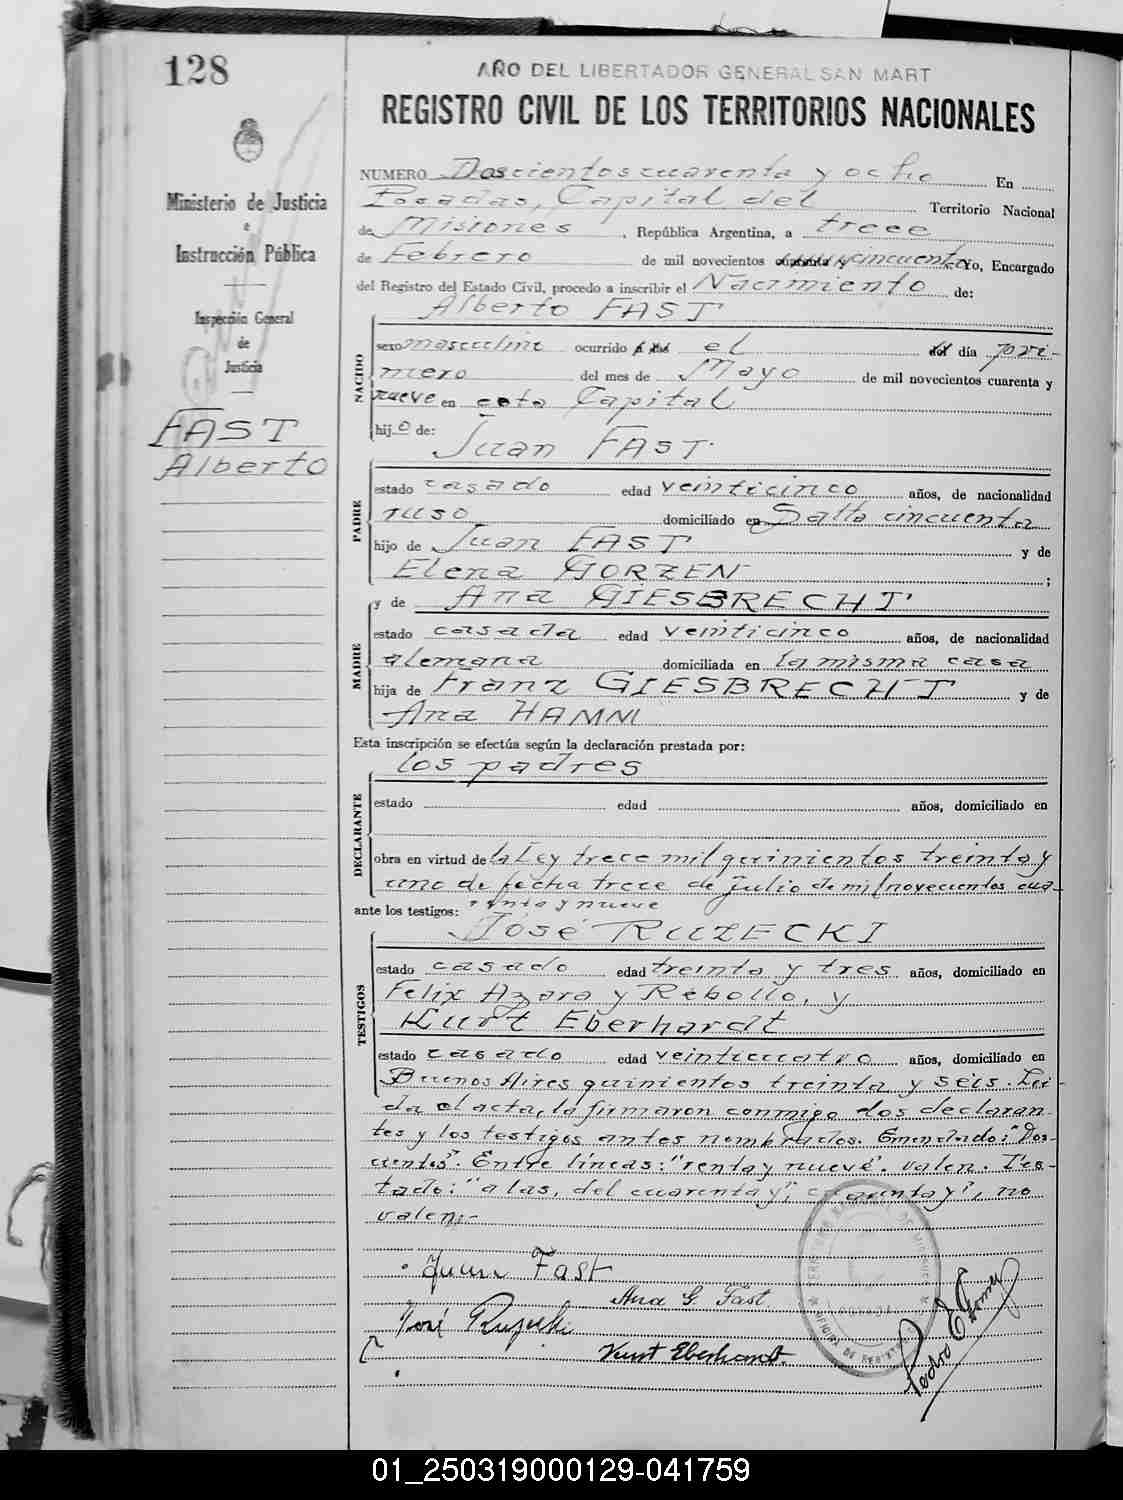 128
AÑO DEL LIBERTADOR GENERAL SAN MART
REGISTRO CIVIL DE LOS TERRITORIOS NACIONALES
Ministerio de Justicia
e
Instrucción Pública
Inspección General
de
Justicia
FAST
Alberto
NUMERO Doscientos cuarenta y ocho En
Posadas, Capital del Territorio Nacional
de Misiones, República Argentina, a trece
de Febrero de mil novecientos cuarenta y cincuenta Yo, Encargado
del Registro del Estado Civil, procedo a inscribir el Nacimiento de:
Alberto FAST
NACIDO
sexo masculino ocurrido a las el del día pri-
mero del mes de Mayo de mil novecientos cuarenta y
nueve en esta Capital
hijo de: Juan FAST
PADRE
estado casado edad veinticinco años, de nacionalidad
ruso domiciliado en Salta cincuenta
hijo de Juan FAST y de
Elena GORZEN ;
y de Ana GIESBRECHT
MADRE
estado casada edad veinticinco años, de nacionalidad
alemana domiciliada en la misma casa
hija de Franz GIESBRECHT y de
Ana HAMM
Esta inscripción se efectúa según la declaración prestada por:
los padres
DECLARANTE
estado edad años, domiciliado en
obra en virtud de la Ley trece mil quinientos treinta y
uno de fecha trece de julio de mil novecientos cua-
renta y nueve
ante los testigos:
José RUZECKI
TESTIGOS
estado casado edad treinta y tres años, domiciliado en
Felix Azara y Rebollo, y
Kurt Eberhardt
estado casado edad veinticuatro años, domiciliado en
Buenos Aires quinientos treinta y seis. Leí-
da el acta, la firmaron conmigo los declaran-
tes y los testigos antes nombrados. Enmendado: "Dos-
cientos". Entre líneas: "renta y nueve". valen. Tes-
tado: "a las, del cuarenta y", cuarenta y", no
valen.-
Juan Fast
Ana G. Fast
José Ruzecki
Kurt Eberhardt.
Pedro E Gomez
01_250319000129-041759